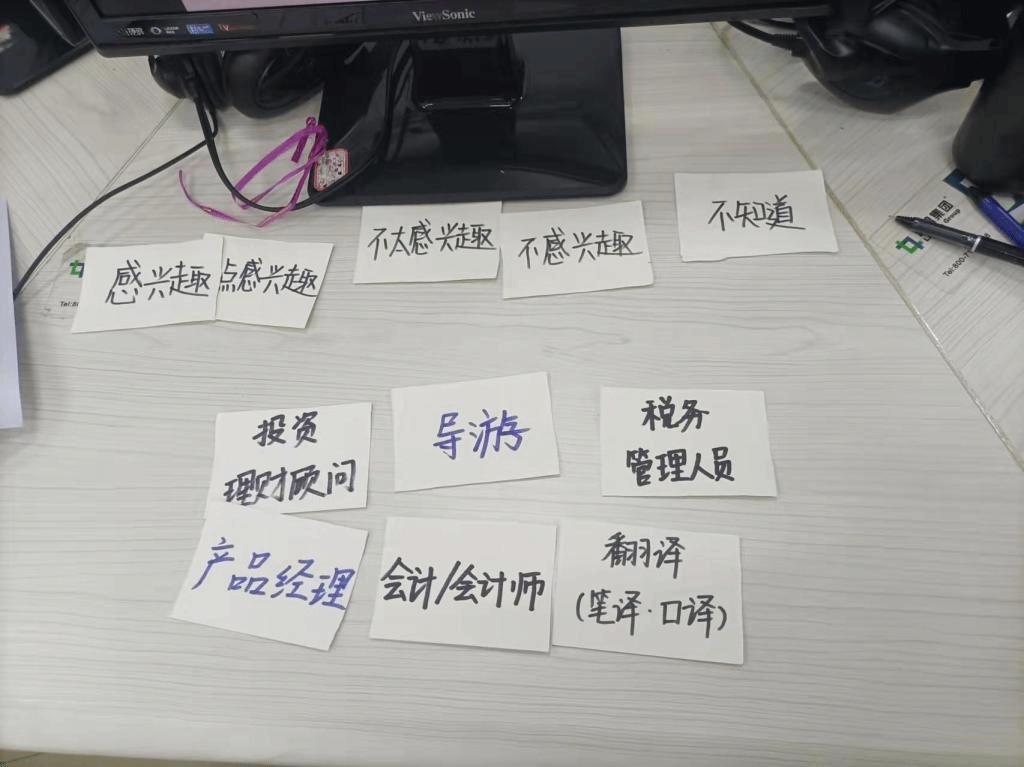 ViewSonic
不太感兴趣
不感兴趣
不知道
感兴趣
点感兴趣
集团
Group
投资
理财顾问
导游
税务
管理人员
产品经理
会计/会计师
翻译
(笔译·口译)